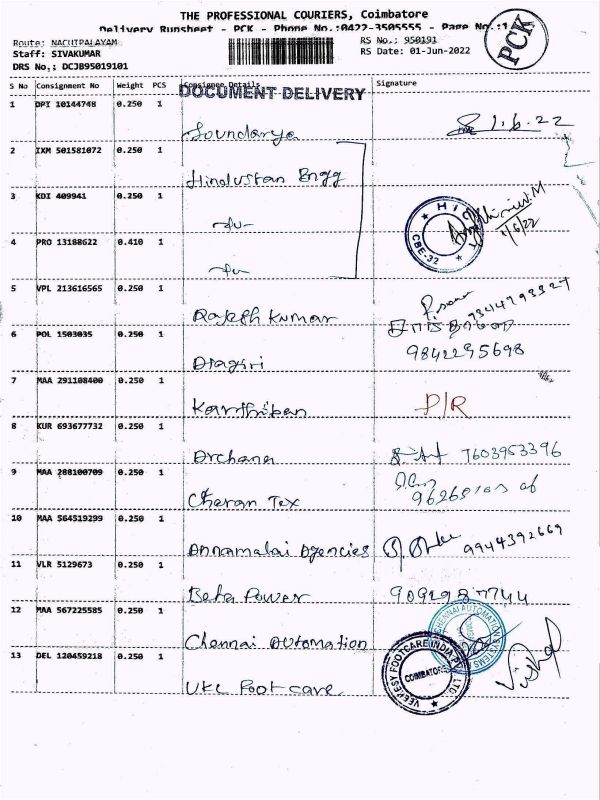 THE PROFESSIONAL COURIERS, Coimbatore
Delivery Runsheet - PCK - Phone No.:0422-3505555 - Page No.:1
PCK
Route: NACHIPALAYAM
Staff: SIVAKUMAR
DRS No,; DCJB95019101
RS No.; 950191
RS Date: 01-Jun-2022
S No Consignment No Weight PCS Consignee Details Signature
DOCUMENT DELIVERY
1 DPI 10144748 0.250 1
Soundarya 1.6.22
2 IXM 501581072 0.250 1
Hindustan Engg
3 KDI 409941 0.250 1
-du-
CBE-32
1/6/22
4 PRO 13188622 0.410 1
-du-
5 VPL 213616565 0.250 1
Rajesh Kumar
6 POL 1503035 0.250 1
9842295698
7 MAA 291108400 0.250 1
Karthiban P/R
8 KUR 693677732 0.250 1
Archana 7603953396
9 MAA 288100709 0.250 1
Charan Tex
10 MAA 564519299 0.250 1
Annamalai Agencies 9944392669
11 VLR 5129673 0.250 1
Beta Power
12 MAA 567225585 0.250 1
Chennai Automation
CHENNAI AUTOMATION SYSTEMS
13 DEL 120459218 0.250 1
VEEKESY FOOTCARE INDIA PVT LTD.
COIMBATORE
VKC Footcare